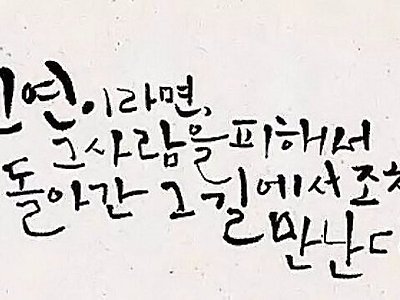 인연이라면,
그 사람을 피해서
돌아간 그 길에서조차
만난다